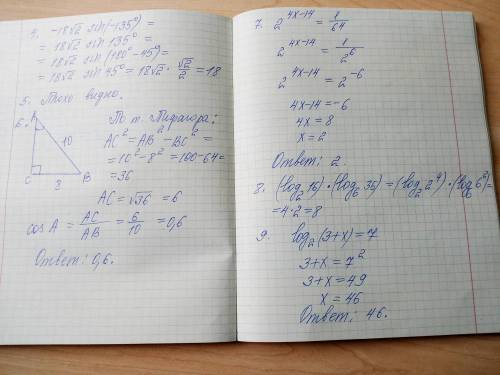 4. -18√2 sin(-135°) =
= 18√2 sin 135° =
= 18√2 sin (180° - 45°) =
= 18√2 sin 45° = 18√2 · √2/2 = 18
5. Плохо видно.
6. A
10
C
8
B
По т. Пифагора:
AC² = AB² - BC² =
= 10² - 8² = 100 - 64 =
= 36
AC = √36 = 6
cos A = AC/AB = 6/10 = 0,6
Ответ: 0,6.
7. 2^(4x-14) = 1/64
2^(4x-14) = 1/2⁶
2^(4x-14) = 2⁻⁶
4x-14 = -6
4x = 8
x = 2
Ответ: 2.
8. (log₂ 16) · (log₆ 36) = (log₂ 2⁴) · (log₆ 6²) =
= 4 · 2 = 8
9. log₂ (3+x) = 7
3+x = 7²
3+x = 49
x = 46
Ответ: 46.